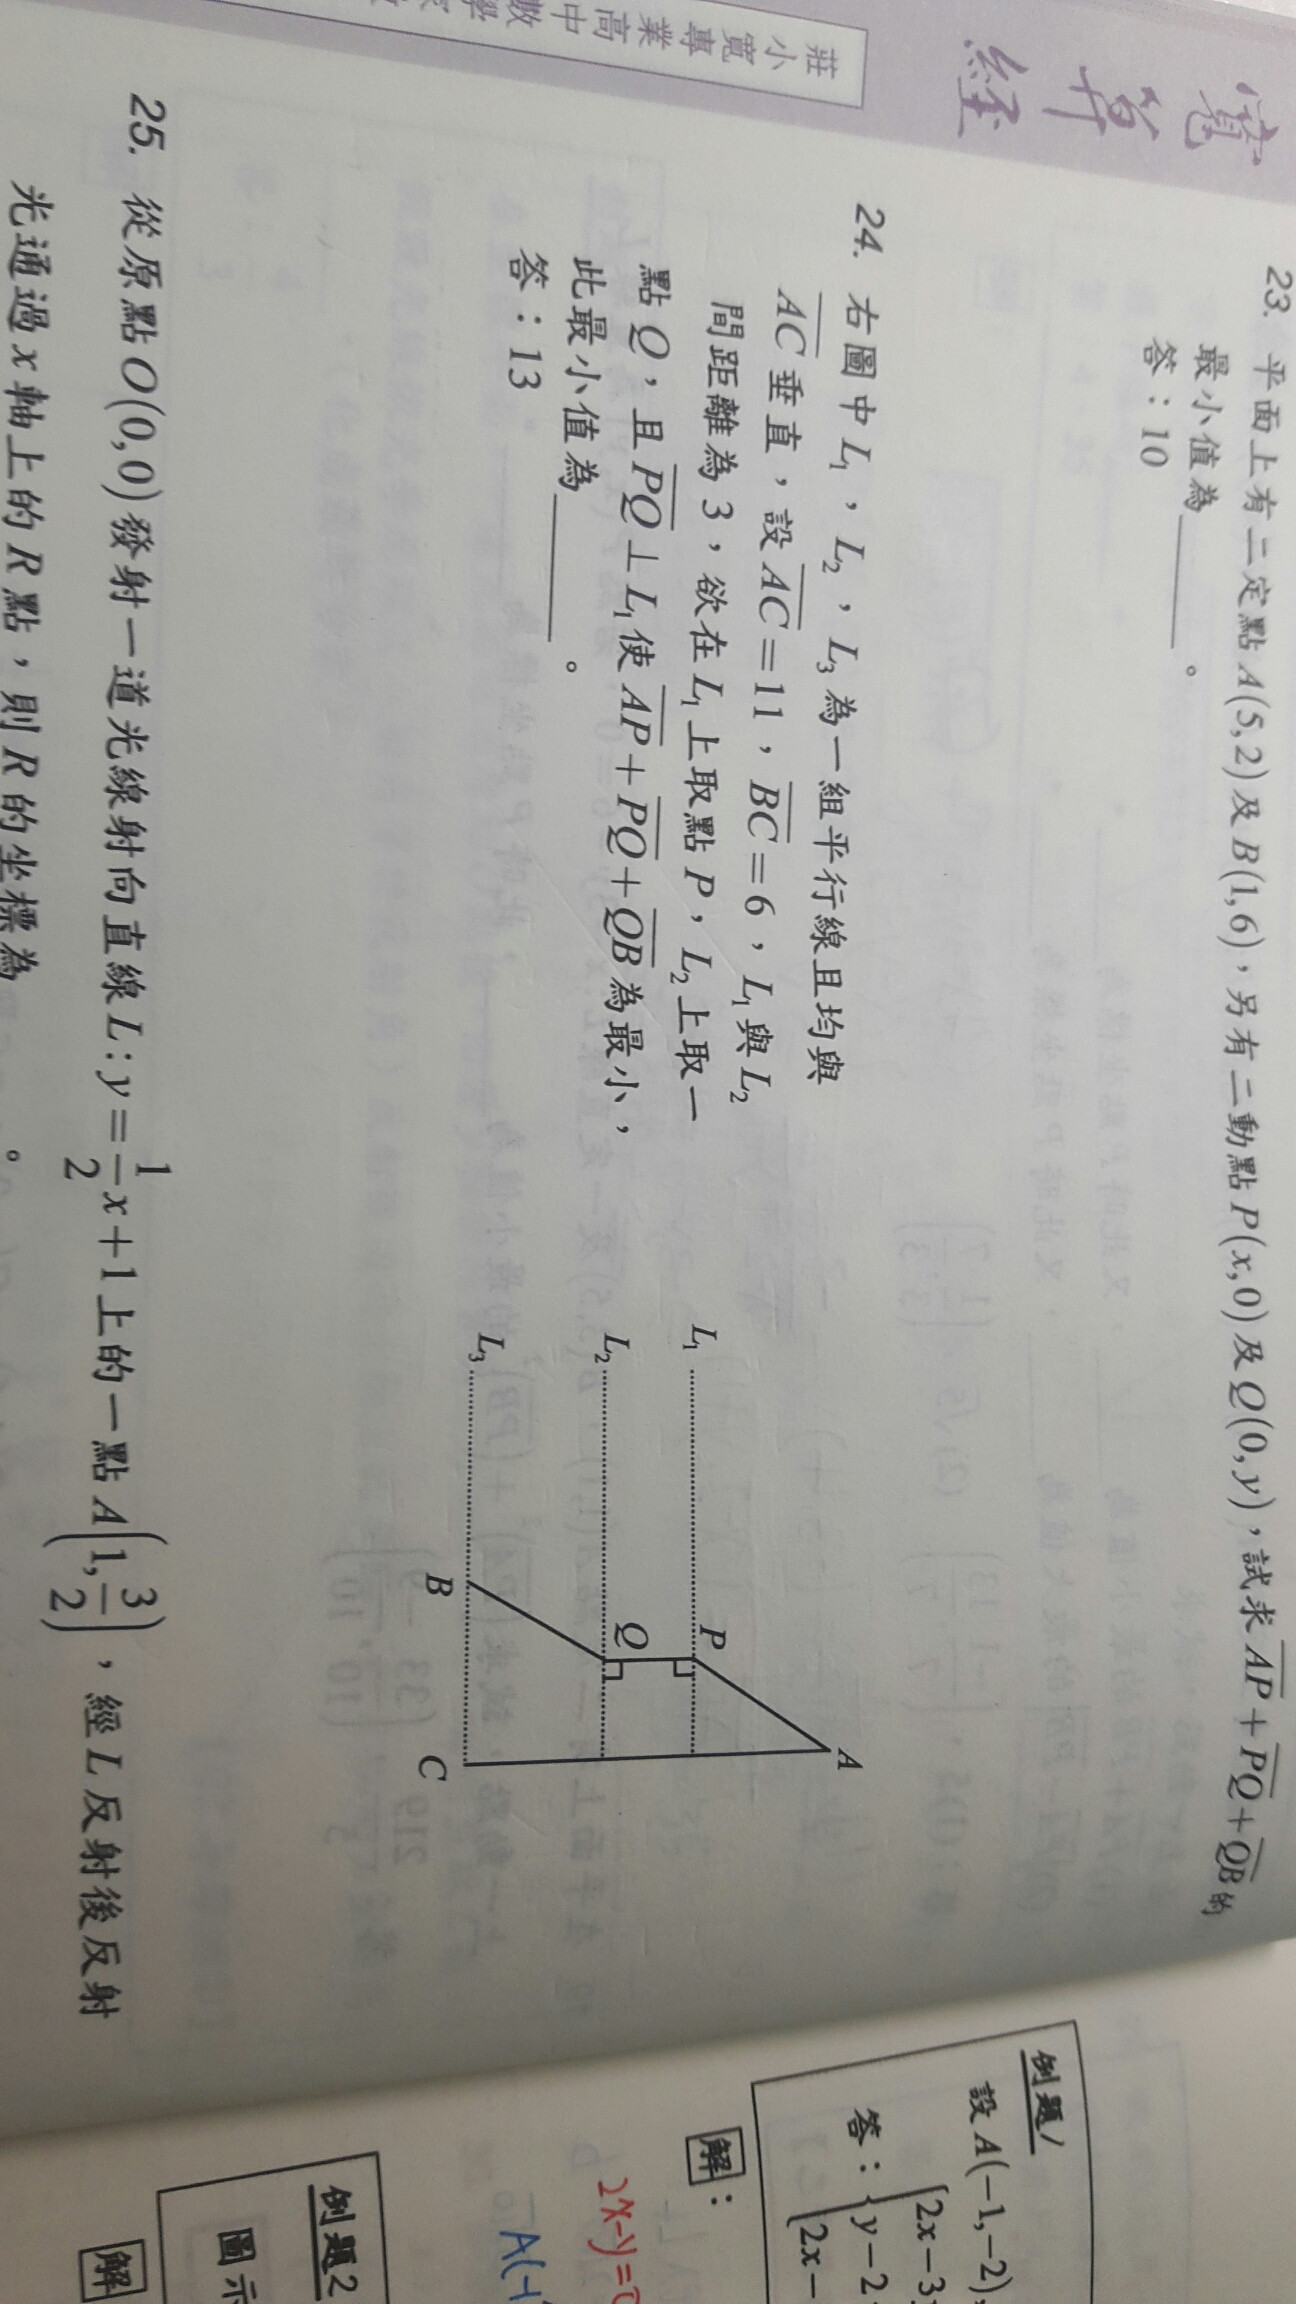 寬
算
經
莊小寬專業高中數學
23. 平面上有二定點A(5,2)及B(1,6),另有二動點P(x,0)及Q(0,y),試求AP+PQ+QB的
最小值為______。
答:10
24. 右圖中L₁,L₂,L₃為一組平行線且均與
AC垂直,設AC=11,BC=6,L₁與L₂
間距離為3,欲在L₁上取點P,L₂上取一
點Q,且PQ⊥L₁使AP+PQ+QB為最小,
此最小值為______。
答:13
A
L₁
P
L₂
Q
L₃
B
C
25. 從原點O(0,0)發射一道光線射向直線L:y=1/2x+1上的一點A(1,3/2),經L反射後反射
光通過x軸上的R點,則R的坐標為______。
例題1
設A(−1,−2),
{2x−3y
答:{y−2
{2x−
解:
2x-y=0
A(-1
例題2
圖示
解